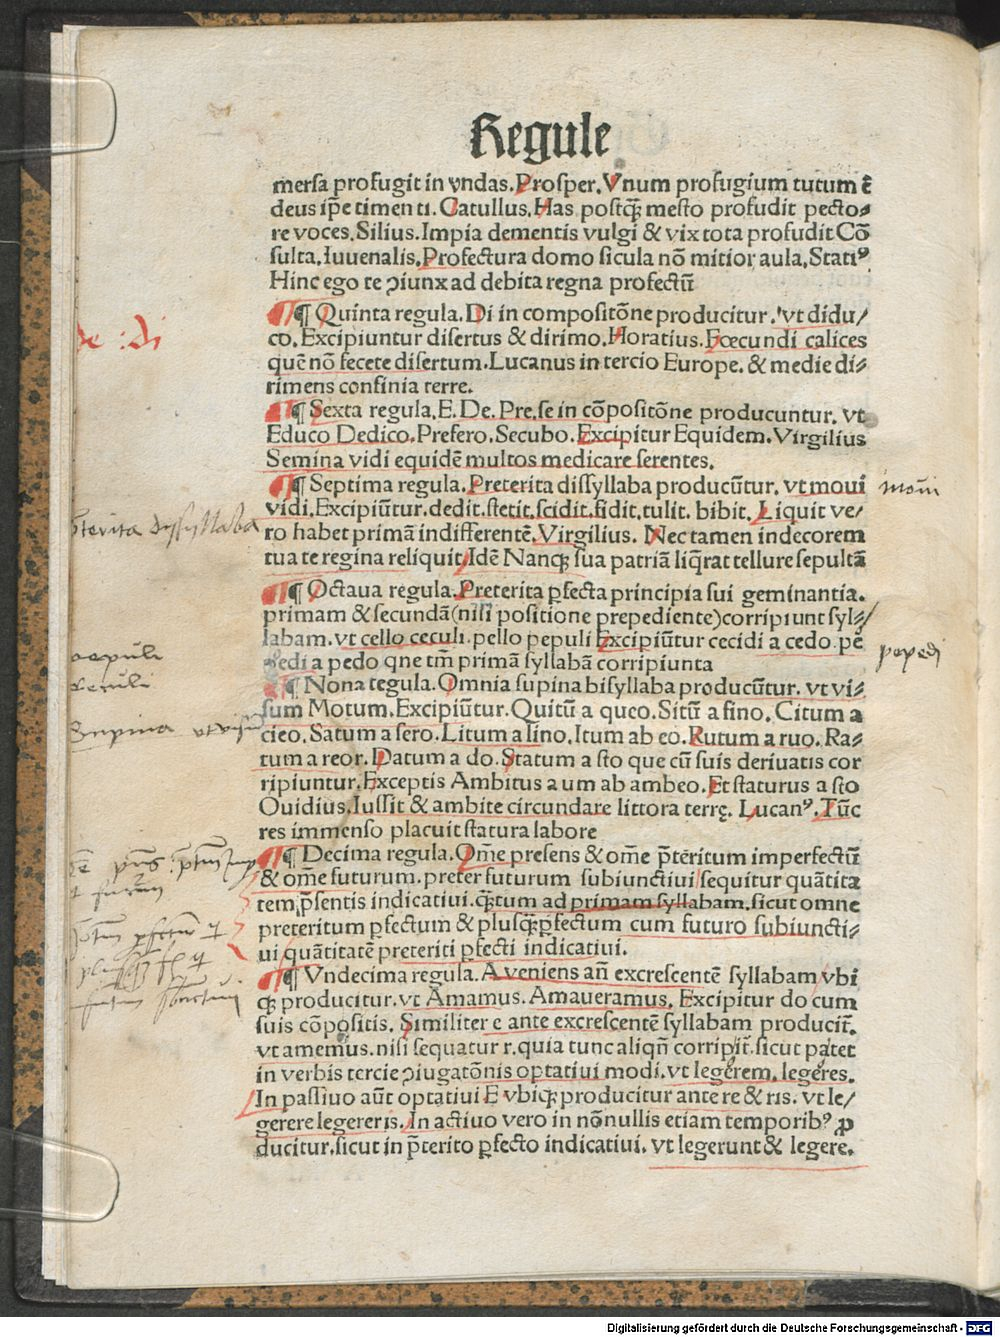 Regule
mersa profugit in vndas. Prosper. Vnum profugium tutum ē
deus ip̄e timen ti. Catullus. Has postq̄ȝ mesto profudit pecto⸗
re voces. Silius. Impia dementis vulgi & vix tota profudit Cō
sulta. Iuuenalis. Profectura domo sicula nō mitior aula. Statiꝰ
Hinc ego te ↄiunx ad debita regna profectū
¶ Quinta regula. Di in compositōne producitur. vt didu/
de : di
co. Excipiuntur disertus & dirimo. Horatius. Fœcundi calices
quē nō fecete disertum. Lucanus in tercio Europe. & medie di⸗
rimens confinia terre.
¶ Sexta regula. E. De. Pre. se in cōpositōne producuntur. vt
Educo Dedico. Prefero. Secubo. Excipitur Equidem. Virgilius
Semina vidi equidē multos medicare serentes.
¶ Septima regula. Preterita dissyllaba producūtur. vt moui
moui
vidi. Excipiūtur. dedit. stetit. scidit. fidit. tulit. bibit. Liquit ve/
p̄terita dyssyllaba
ro habet primā indifferentē. Virgilius. Nec tamen indecorem
tua te regina reliquit. Idē Nanqȝ sua patriā liq̄rat tellure sepultā
¶ Octaua regula. Preterita ꝑfecta principia sui geminantia.
primam & secundā (nisi positione prepediente) corripiunt syl⸗/
labam. vt cello ceculi. pello pepuli Excipiūtur cecidi a cedo. pē
pepuli
pepedi
pedi a pedo qne tm̄ primā syllabā corripiunta
ceculi
¶ Nona tegula. Omnia supina bisyllaba producūtur. vt vi⸗
sum Motum. Excipiūtur. Quitū a queo. Sitū a sino. Citum a
Supina vt visū
cieo. Satum a sero. Litum a lino. Itum ab eo. Rutum a ruo. Ra⸗
tum a reor. Datum a do. Statum a sto que cū suis deriuatis cor
ripiuntur. Exceptis Ambitus a um ab ambeo. Et staturus a sto
Ouidius. Iussit & ambite circundare littora terrę. Lucanꝰ. Tūc
res immenso placuit statura labore
¶ Decima regula. Om̄e presens & om̄e p̄teritum imperfectū
& om̄e futurum. preter futurum subiunctiui sequitur quātita
tem p̄sentis indicatiui. q̄ȝtum ad primam syllabam. sicut omne
preteritum ꝑfectum & plusq̄ȝꝑfectum cum futuro subiuncti⸗
ui quātitatē preteriti ꝑfecti indicatiui.
¶ Vndecima regula. A veniens an̄ excrescentē syllabam vbi
qȝ producitur. vt Amamus. Amaueramus. Excipitur do cum
suis cōpositis. Similiter e ante excrescentē syllabam producit̄.
vt amemus. nisi sequatur r. quia tunc aliqn̄ corripit̄. sicut patet
in verbis tercie ↄiugatōnis optatiui modi. vt legerem. legeres.
In passiuo aūt optatiui E vbiqȝ producitur ante re & ris. vt le/
gerere legereris. In actiuo vero in nōnullis etiam temporibꝰ ꝓ
ducitur. sicut in p̄terito ꝑfecto indicatiui. vt legerunt & legere.
Digitalisierung gefördert durch die Deutsche Forschungsgemeinschaft - DFG